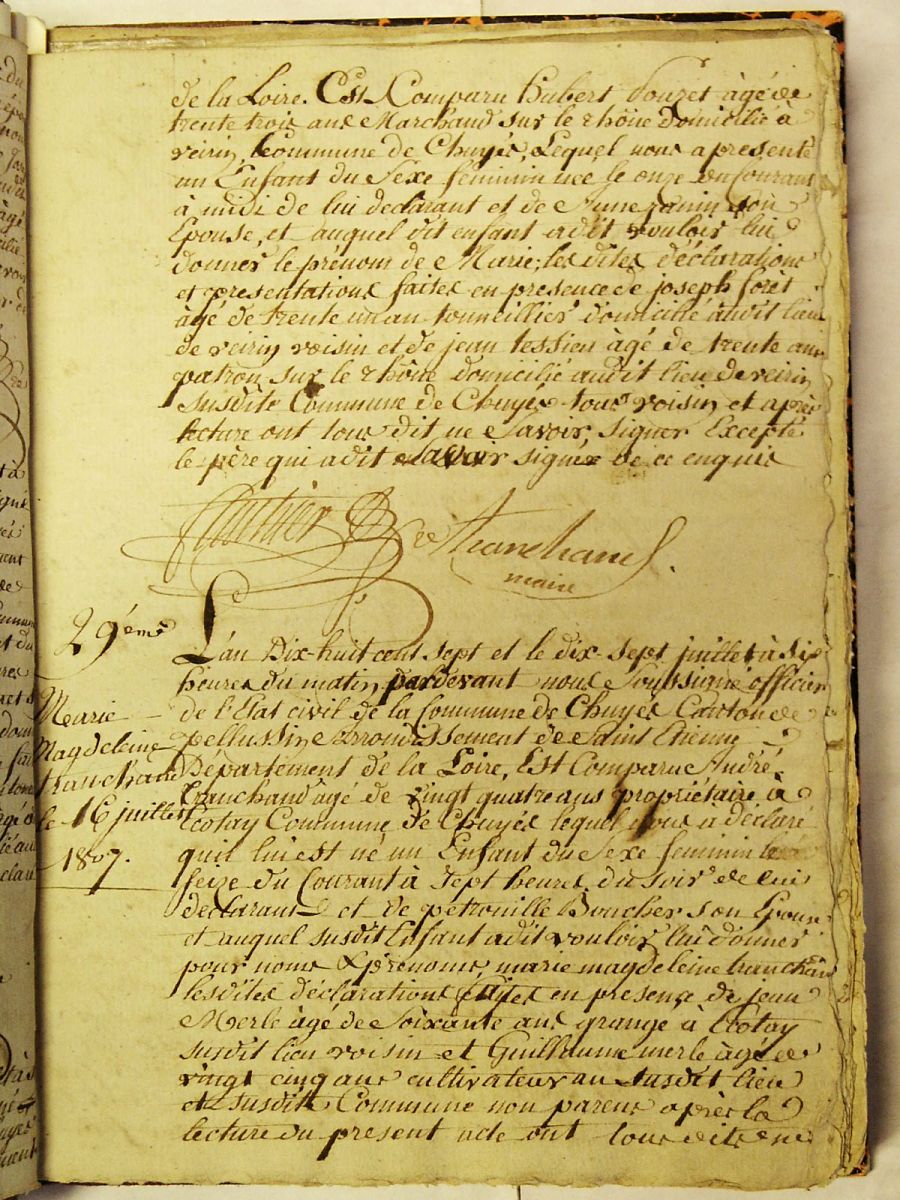 de la Loire. Est Comparu hubert Pouzet âgé de
trente trois ans Marchand sur le rhône domicilié à
verin, Commune de Chuyes, Lequel nous a presenté
un Enfant du Sexe feminin née le onze du Courant
à midi de lui declarant et de Anne janin son
Epouse, et auquel dit enfant a dit vouloir lui
donner le prénom de Marie; les dites déclarations
et presentations faites en presence de joseph forêt
âgé de trente un an tonneillier domicilié audit lieu
de verin voisin et de jean tessien âgé de trente ans
patron sur le rhône domicilié audit lieu de verin
susdite Commune de Chuyes tous voisin et après
lecture ont tous dit ne Savoir, Signer Excepté
le père qui a dit savoir signé de ce enquis
Tranchand
maire
29éme
L'an Dix-huit cent sept et le dix-sept juillet à six
heures du matin pardevant nous Soussigné officier
de l'Etat civil de la Commune de Chuyes Canton de
pellussin Arrondissement de Saint Etienne
Departement de la Loire, Est Comparu André
tranchand agé de vingt quatre ans propriétaire à
Ecotay Commune de Chuyes lequel nous a déclaré
quil lui est né un Enfant du Sexe feminin le
seize du Courant à Sept heures du soir de lui
declarant et de pétronille Boucher son Epouse
et auquel susdit Enfant a dit vouloir lui donner
pour noms & prénoms, marie magdeleine tranchand
lesdites déclarations faites en presence de jean
Merle âgé de Soixante ans granger à Ecotay
susdit lieu voisin et Guilhaume merle âgé de
vingt cinq ans cultivateur au susdit lieu
et susdite Commune non parens après la
lecture du present acte ont tous dit ne
Marie
Magdeleine
tranchand
le 16 juillet
1807.